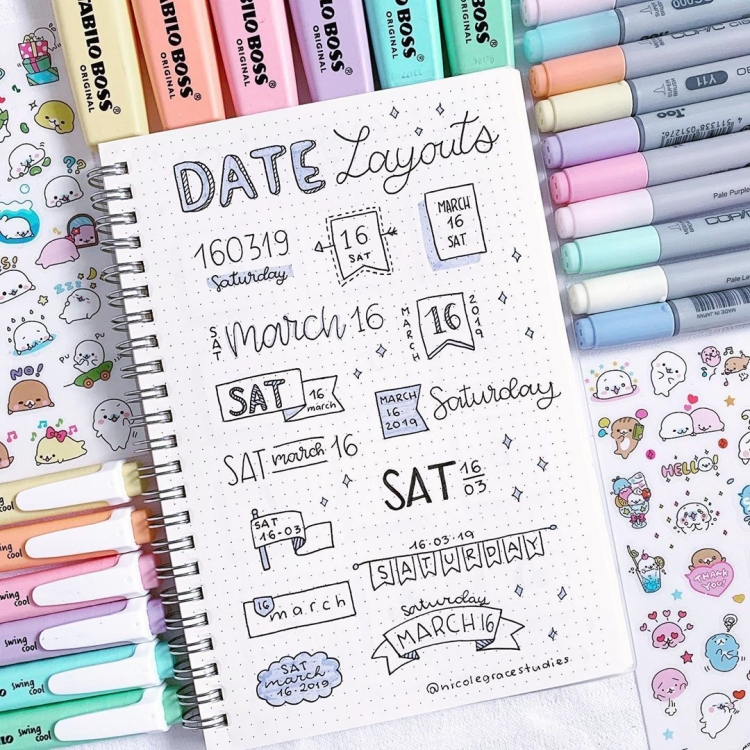 STABILO BOSS
ORIGINAL
STABILO BOSS
ORIGINAL
STABILO BOSS
ORIGINAL
STABILO BOSS
ORIGINAL
BOSS
ORIGINAL
BOSS
ORIGINAL
DATE Layouts
160319
Saturday
16
SAT
MARCH
16
SAT
SAT
march 16
MARCH
16
2019
SAT
16
march
MARCH
16
2019
Saturday
SAT march 16
SAT 16
03
SAT
16-03
16.03.19
SATURDAY
16
march
saturday
MARCH 16
SAT
march
16.2019
@nicolegracestudies
Y11
Too
4511338051276
Pale Purple
MADE IN JAPAN
NO!
HELLO!
THANK
YOU!
swing
cool
swing
cool
swing
cool
swing
cool
swing
cool
swing
cool